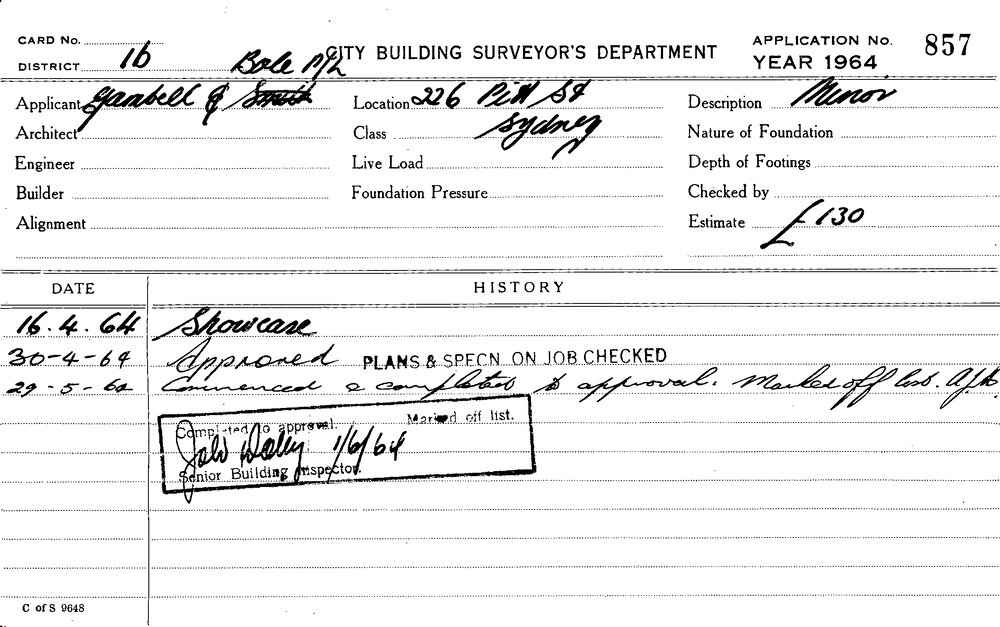 CARD No.
CITY BUILDING SURVEYOR'S DEPARTMENT
APPLICATION No. 857
DISTRICT 1b
YEAR 1964
Bole P/L
Applicant Gambell & Smith
Location 226 Pitt St
Description Minor
Architect
Class Sydney
Nature of Foundation
Engineer
Live Load
Depth of Footings
Builder
Foundation Pressure
Checked by
Alignment
Estimate £130
DATE HISTORY
16.4.64 Showcase
30-4-64 Approved PLANS & SPECN. ON JOB CHECKED
29-5-64 Commenced & completed to approval. Marked off list.
Completed to approval. Marked off list.
1/6/64
Senior Building Inspector.
C of S 9648